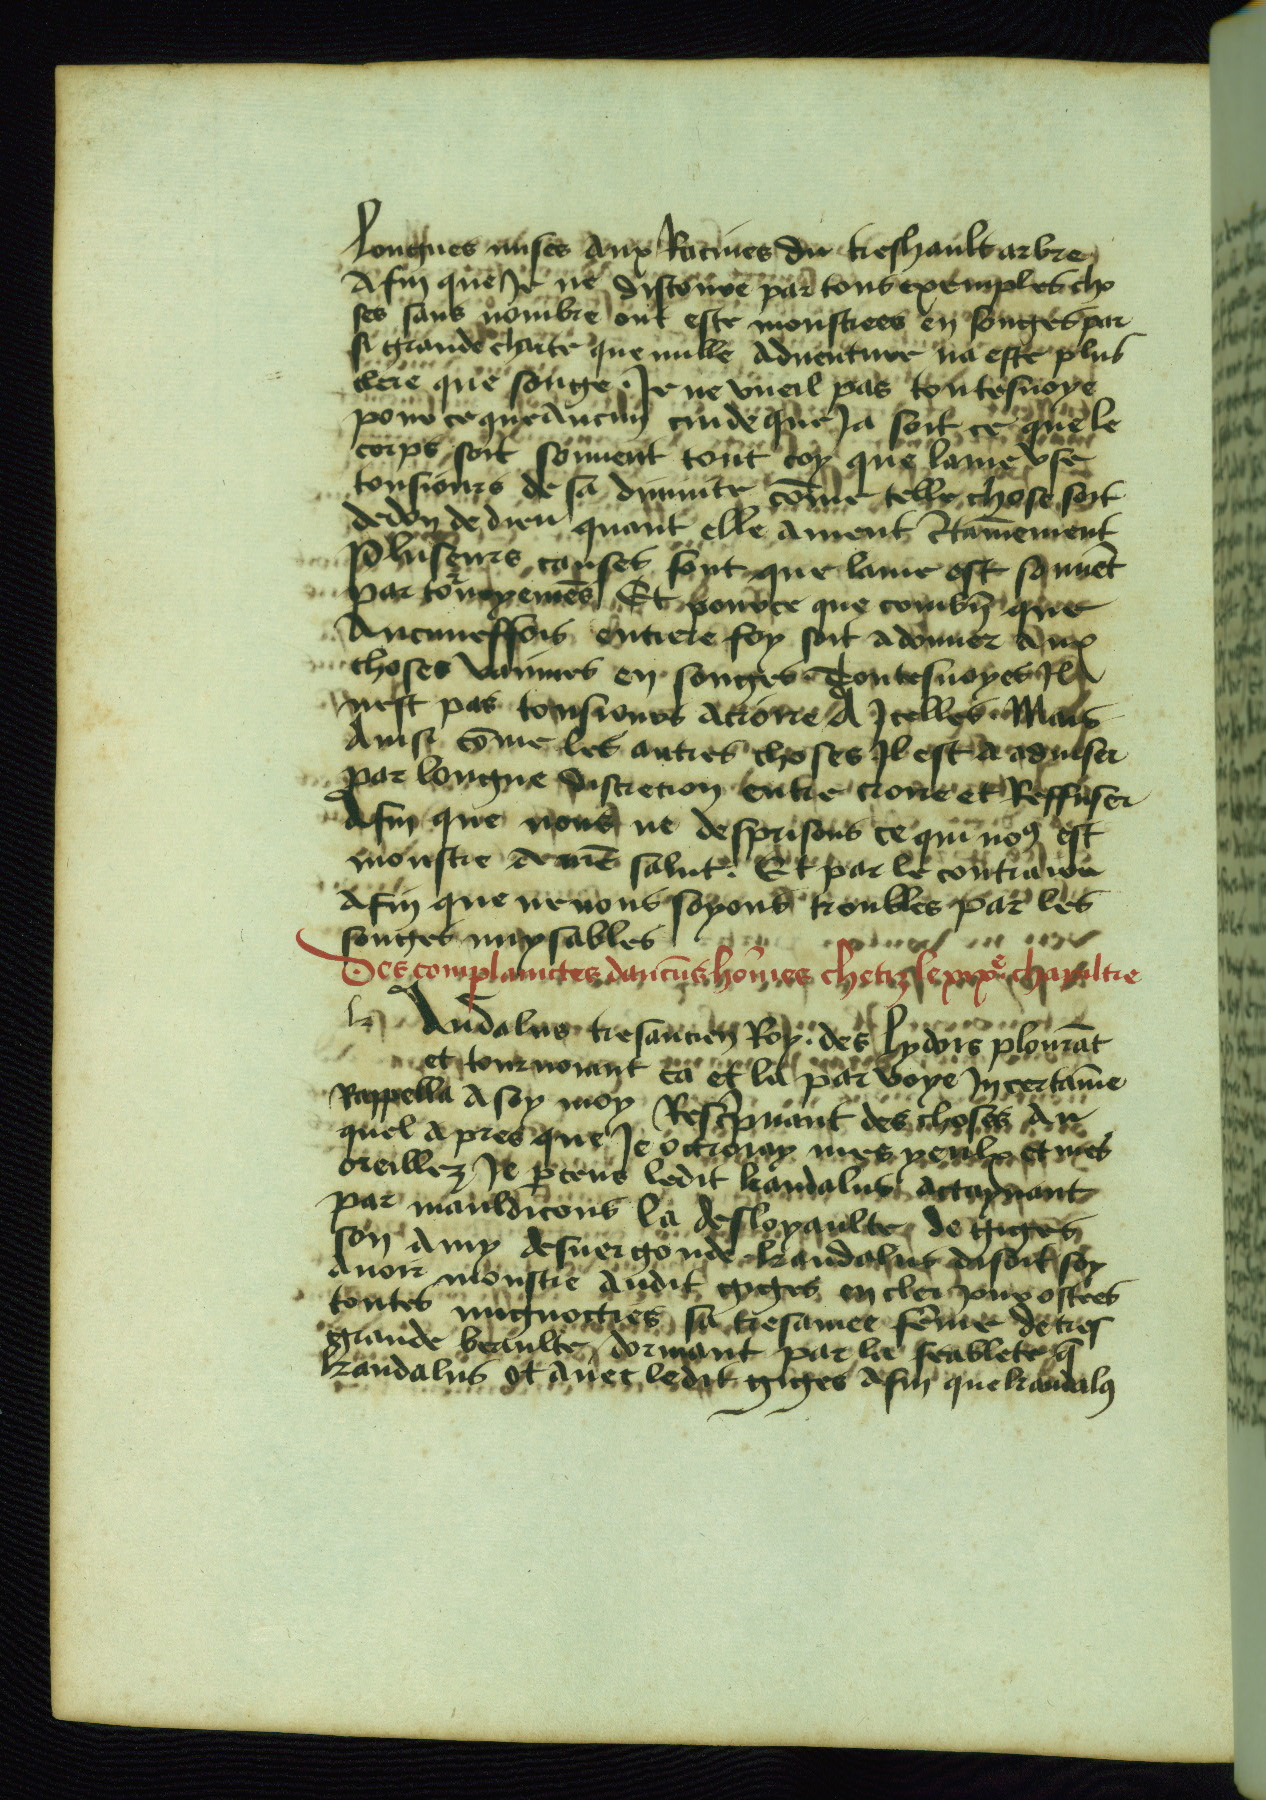 Longues mises aux Racines du treshault arbre
Afin que Je ne discoure par tous exemples cho
ses sans nombre ont este monstrees en songes par
si grande clarte que nulle aduenture na este plus
clere que songe. Je ne vueil pas toutesuoye
pour ce que Aucun cuide que Ja soit ce que le
corps soit souuent tout coy que lame vse
tousiours de sa diuinite cõme telle chose soit
de don de dieu quant elle auient Et
Pluseurs causes sont que lame est souuẽt
par Et pour ce que combiẽ que
Aucuneffois entiere foy soit a donner aux
choses vaines en songes Toutesuoyes Il
nest pas tousiours a croire A Jcelles. Mais
Ainsi cõme les autres choses Il est a aduiser
par longue discretion entre croire et Reffuser
Afin que nous ne desprisons ce qui noꝯ est
monstre a salut. Et par le contraire
Afin que ne nous soyons troubles par les
songes nuysables
Des complainctes daucũs hõmes chetiz le xixe chapiltre
k Andalus tresancien Roy des Lydois plourãt
et tournoiant ca et la par voye Jncertaine
Rappella A soy moy Rescripuant des choses Au
quel apres que Je octroiay mes yeulx et mes
oreillez Je ꝑceus ledit kandalus actaynant
par mauldicons la desloyaulte de giges
son amy desuergonde kandalus disoit soy
Auoir monstre Audit gyges en cler Jour ostees
toutes sa tresamee fẽme de tres
grande beaulte dormant par la feablete q̃
kandalus ot auec ledit giges Afin que kandalꝯ